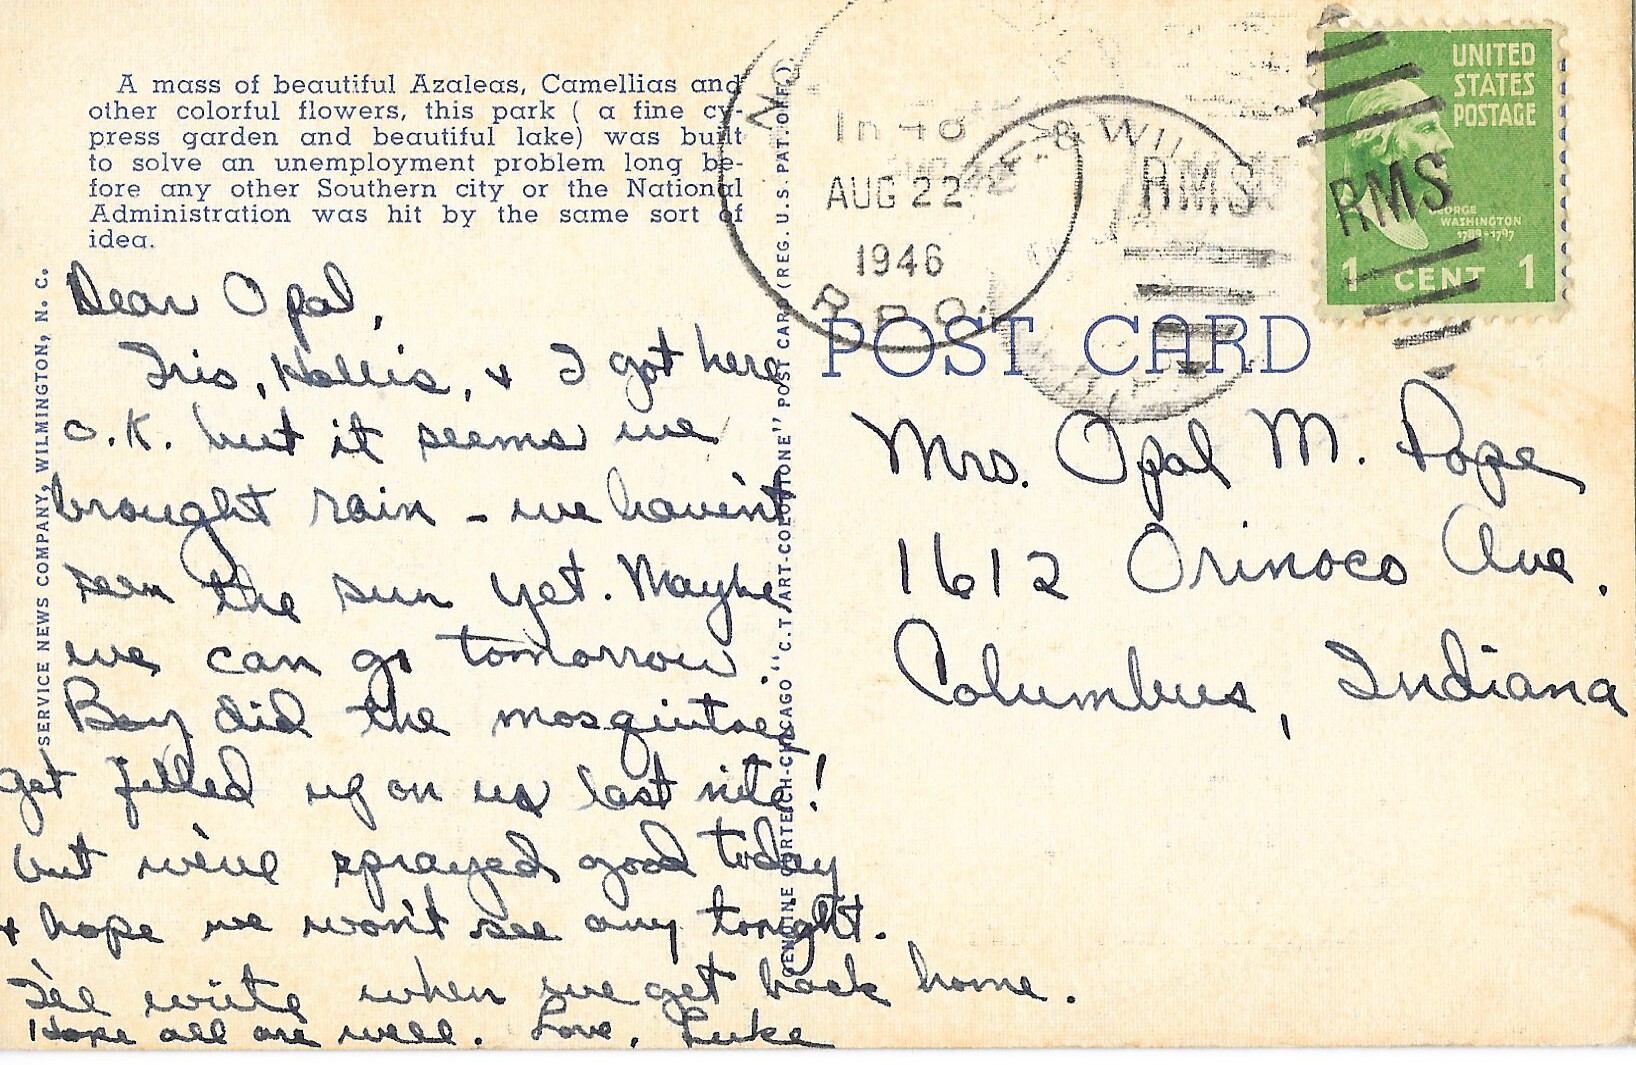 A mass of beautiful Azaleas, Camellias and
other colorful flowers, this park ( a fine cy-
press garden and beautiful lake) was built
to solve an unemployment problem long be-
fore any other Southern city or the National
Administration was hit by the same sort of
idea.
SERVICE NEWS COMPANY, WILMINGTON, N. C.
Dear Opal,
Iris, Hollis, + I got here
O.K. but it seems we
brought rain - we haven't
seen the sun yet. Maybe
we can go tomorrow.
Boy did the mosquitoes
get filled up on us last nite!
but we've sprayed good today
+ hope we won't see any tonight.
I'll write when we get back home.
Hope all are well. Love, Luke
GENUINE CURTEICH-CHICAGO "C.T. ART-COLORTONE" POST CARD (REG. U.S. PAT. OFF.)
& WIL
AUG 22
1946
R.P.O.
RMS
RMS
UNITED
STATES
POSTAGE
GEORGE
WASHINGTON
1789-1797
1 CENT 1
POST CARD
Mrs. Opal M. Pope
1612 Orinoco Ave.
Columbus, Indiana